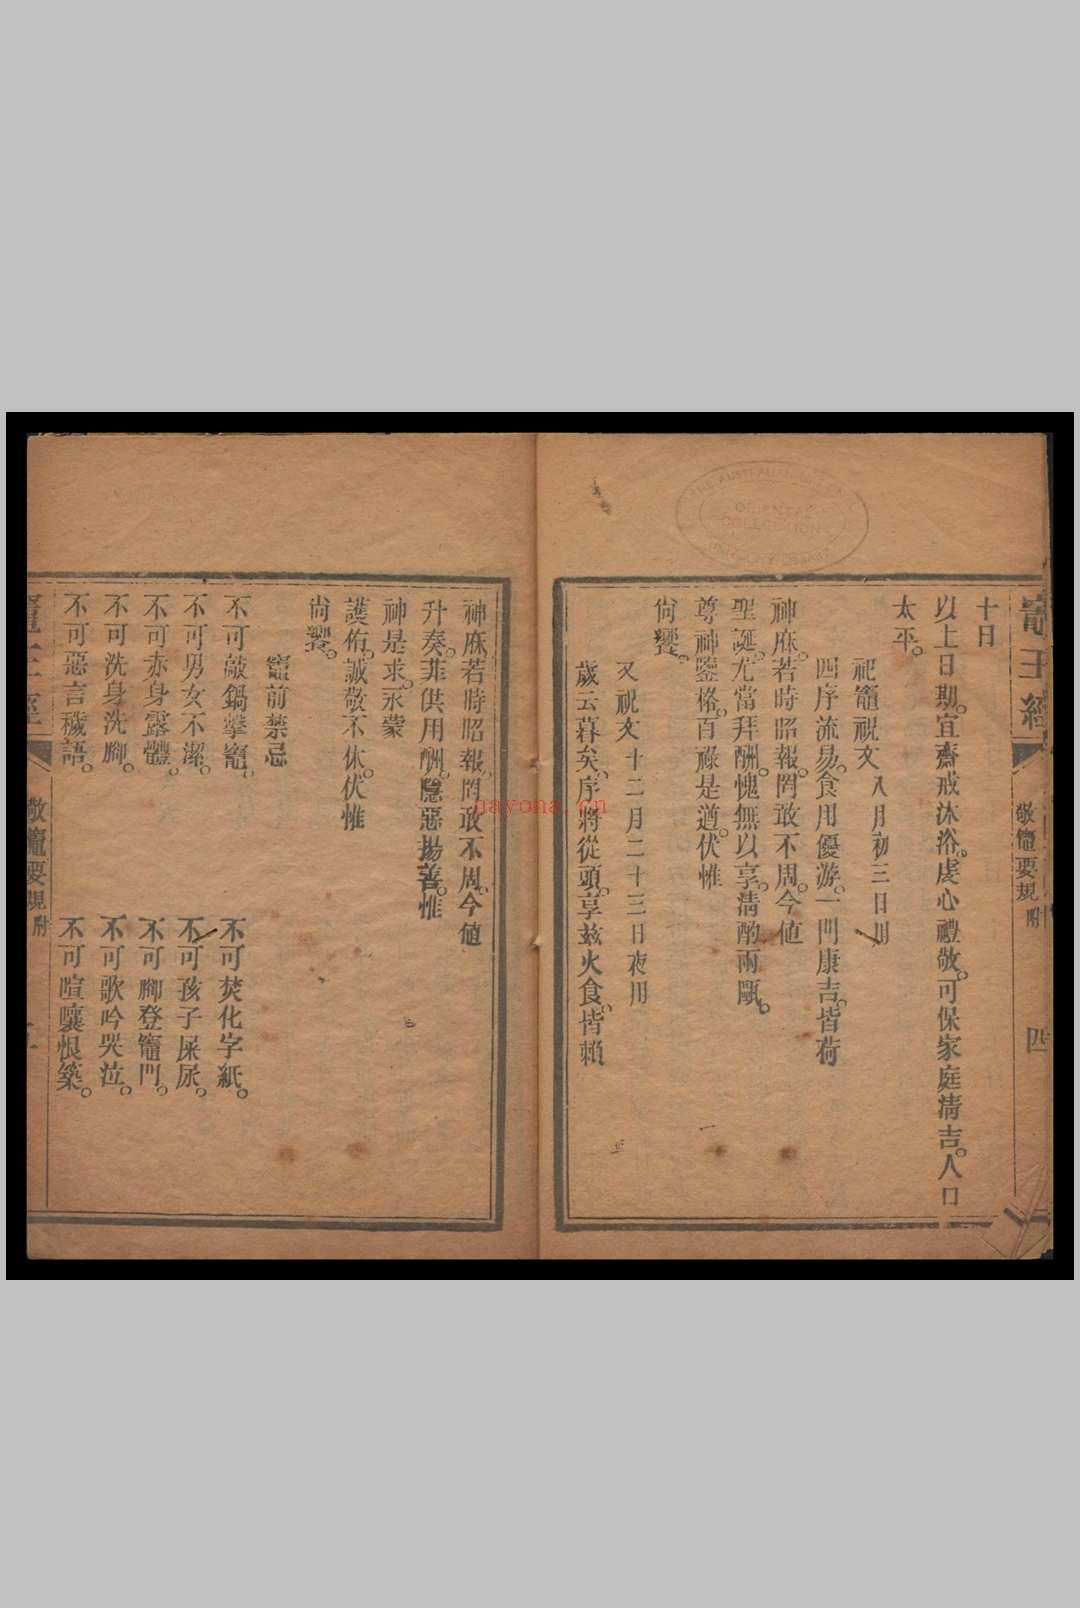 竈王經
敬竈要規附
四
十日
以上日期。宜齋戒沐浴。虔心禮敬。可保家庭淸吉。人口
太平。
祀竈祝文 八月初三日用
四序流易。食用優游。一門康吉。皆荷
神庥。若時昭報。罔敢不周。今値
聖誕。尤當拜酬。愧無以享。淸酌兩甌。
尊神鑒格。百祿是遒。伏惟
尙饗。
又祝文 十二月二十三日夜用
歲云暮矣。序將從頭。享兹火食。皆賴
神庥。若時昭報。罔敢不周。今値
升奏。菲供用酬。隱惡揚善。惟
神是求。永蒙
護佑。誠敬不休。伏惟
尙饗。
竈前禁忌
不可敲鍋擊竈。 不可焚化字紙。
不可男女不潔。 不可孩子屎尿。
不可赤身露體。 不可腳登竈門。
不可洗身洗腳。 不可歌吟哭泣。
不可惡言穢語。 不可喧嚷恨築。
竈王經
敬竈要規附
THE AUSTRALIAN
ORIENTAL
COLLECTION
nayona.cn